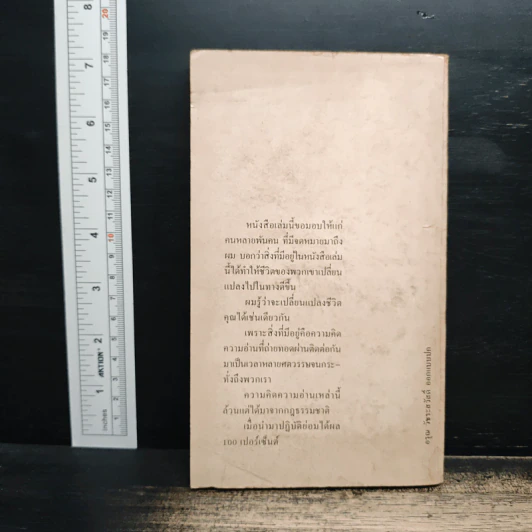 หนังสือเล่มนี้ขอมอบให้แก่
คนหลายพันคน ที่มีจดหมายมาถึง
ผม บอกว่าสิ่งที่มีอยู่ในหนังสือเล่ม
นี้ได้ทำให้ชีวิตของพวกเขาเปลี่ยน
แปลงไปในทางดีขึ้น
ผมรู้ว่าจะเปลี่ยนแปลงชีวิต
คุณได้เช่นเดียวกัน
เพราะสิ่งที่มีอยู่คือความคิด
ความอ่านที่ถ่ายทอดผ่านติดต่อกัน
มาเป็นเวลาหลายศตวรรษจนกระ-
ทั่งถึงพวกเรา
ความคิดความอ่านเหล่านี้
ล้วนแต่ได้มาจากกฎธรรมชาติ
เมื่อนำมาปฏิบัติย่อมได้ผล
100 เปอร์เซ็นต์
อรุณ วัชระสวัสดิ์ ออกแบบปก
8
7
6
5
4
3
2
1
inches
20
19
18
17
16
15
14
13
12
11
10
9
8
7
6
5
4
3
2
1
cm